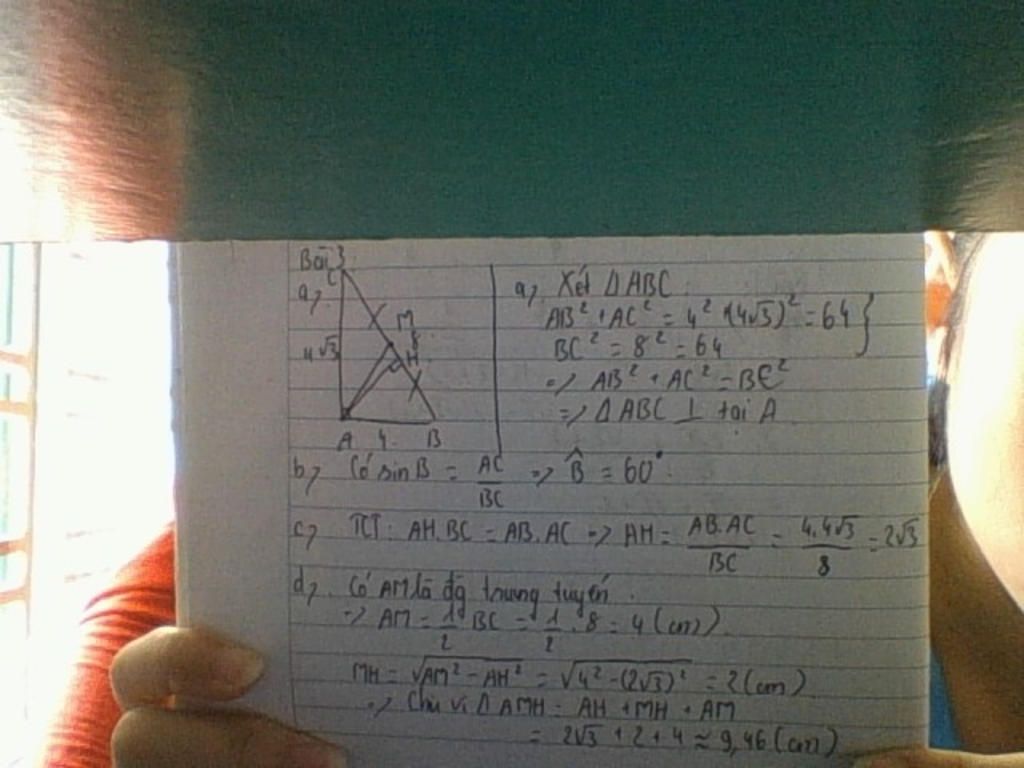 Bài 3
a,
C
M
8
4√3
H
A 4 B
a, Xét ΔABC:
AB² + AC² = 4² + (4√3)² = 64 }
BC² = 8² = 64
=> AB² + AC² = BC²
=> ΔABC ⊥ tại A
b, Có sin B = AC/BC => B̂ = 60°.
c, TCT: AH.BC = AB.AC => AH = AB.AC/BC = 4.4√3/8 = 2√3
d, Có AM là đg trung tuyến.
=> AM = 1/2 BC = 1/2 . 8 = 4 (cm)
MH = √AM² - AH² = √4² - (2√3)² = 2 (cm)
=> Chu vi ΔAMH = AH + MH + AM
= 2√3 + 2 + 4 ≈ 9,46 (cm)